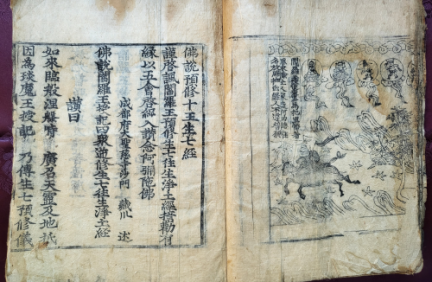 佛說預修十王生七經
謹啓諷閻羅王預修生七往生淨土經誓勸有
緣以五會啓經入讚念阿彌陀佛
成都府大聖慈寺沙門 藏川 述
佛說閻羅王授記四衆逆修生七往生淨土經
讚曰
如來臨般涅槃時 廣召天靈及地祇
因為琰魔王授記 乃傳生七預修儀